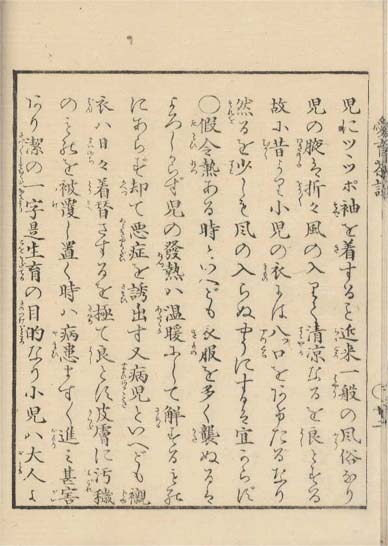 児にツヽポ袖を着すると近来一般の風俗なり
児の腋は折々風の入りて清涼なるを良とする
故に昔より小児の衣には八ツ口をあけたるなり
然るを少しも風の入らぬやうにするは宜からず
〇假令熱ある時といへども衣服を多く襲ぬるは
よろしからず児の發熱は温暖にして解するもの
にあらず却て悪症を誘出す又病児といへども襯
衣は日々着替さするを極て良とす皮膚に汚穢
のものを被覆し置く時は病患ますます進み甚害
あり潔の一字是生育の目的なり小児は大人よ